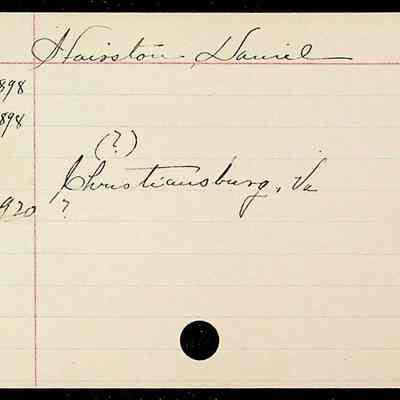 Hairston Daniel
898
898
(?)
Christiansburg, Va
920 ?